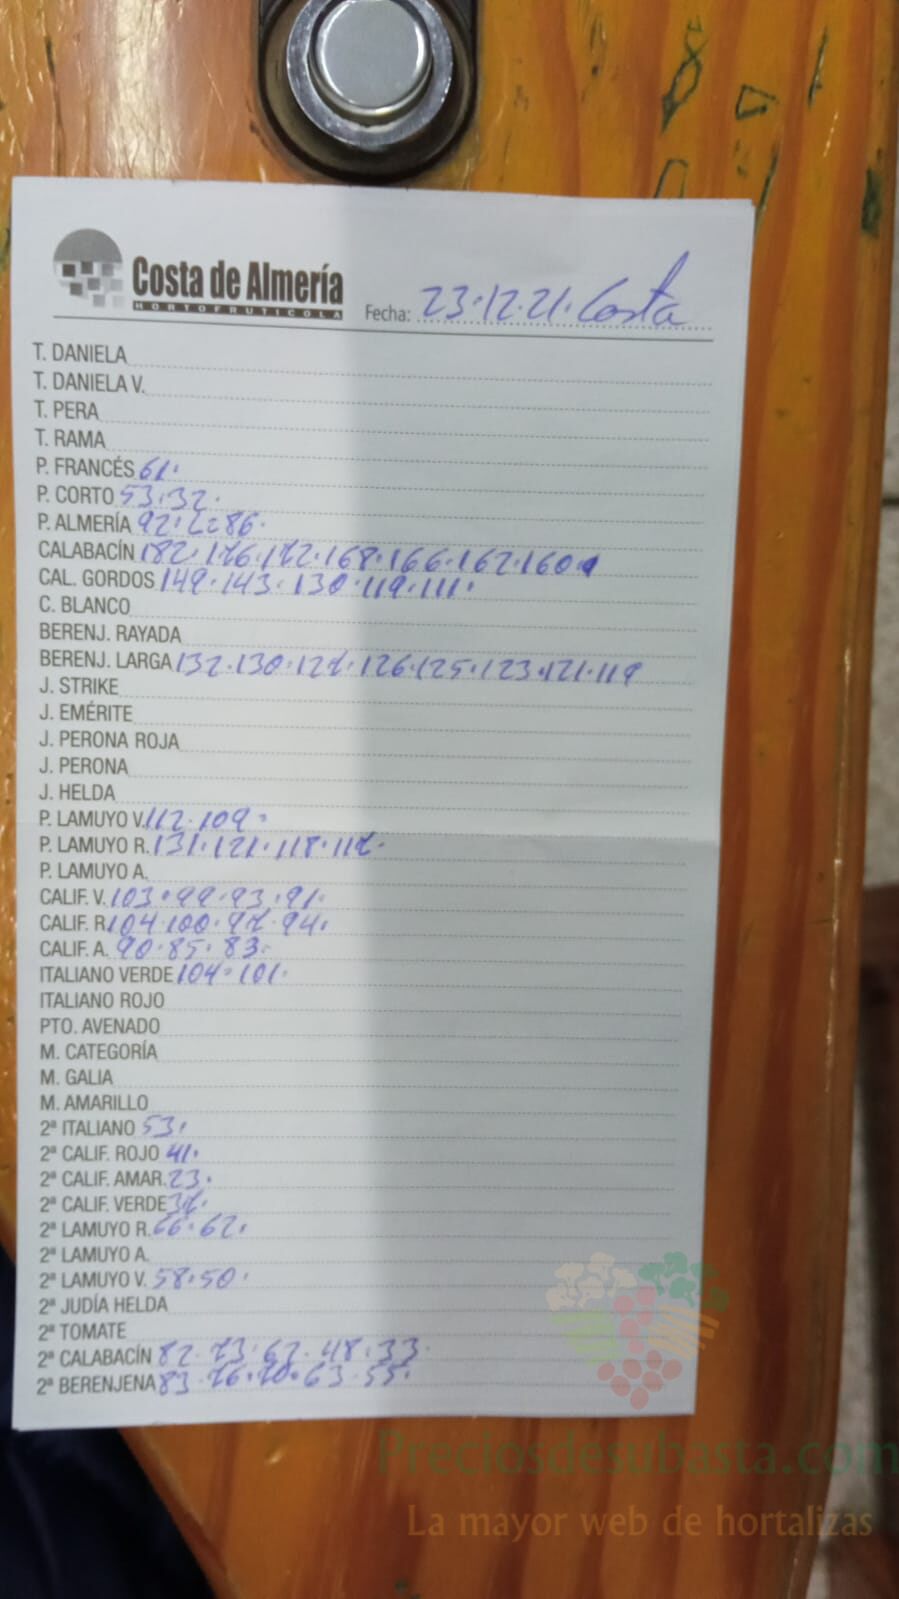 Costa de Almería
HORTOFRUTICOLA
Fecha: 23.12.21. Costa
T. DANIELA
T. DANIELA V.
T. PERA
T. RAMA
P. FRANCÉS 61.
P. CORTO 53.32.
P. ALMERÍA 92. 86.
CALABACÍN 182.176.172.168.166.162.160.
CAL. GORDOS 149.143.130.119.111.
C. BLANCO
BERENJ. RAYADA
BERENJ. LARGA 132.130.127.126.125.123.121.119
J. STRIKE
J. EMÉRITE
J. PERONA ROJA
J. PERONA
J. HELDA
P. LAMUYO V. 112.109.
P. LAMUYO R. 131.121.118.117.
P. LAMUYO A.
CALIF. V. 103.99.93.91.
CALIF. R. 104.100.97.94.
CALIF. A. 90.85.83.
ITALIANO VERDE 104.101.
ITALIANO ROJO
PTO. AVENADO
M. CATEGORÍA
M. GALIA
M. AMARILLO
2ª ITALIANO 53.
2ª CALIF. ROJO 41.
2ª CALIF. AMAR. 23.
2ª CALIF. VERDE 37.
2ª LAMUYO R. 66.62.
2ª LAMUYO A.
2ª LAMUYO V. 58.50.
2ª JUDÍA HELDA
2ª TOMATE
2ª CALABACÍN 82.73.62.48.33.
2ª BERENJENA 83.76.70.63.55.
Preciosdesubasta.com
La mayor web de hortalizas